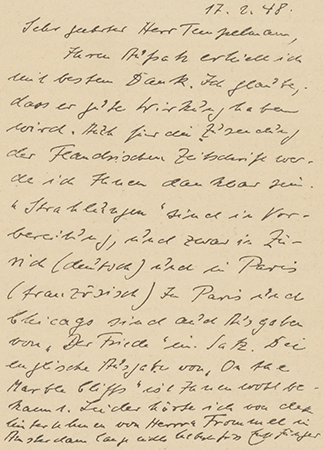 17. 2. 48.
Sehr geehrter Herr Tempelmann,
Ihren Aufsatz erhielt ich
mit bestem Dank. Ich glaube,
dass er gute Wirkung haben
wird. Auch für die Zusendung
der Flandrischen Zeitschrift wer-
de ich Ihnen dankbar sein.
"Strahlungen" sind in Vor-
bereitung, und zwar in Zü-
rich (deutsch) und in Paris
(französisch). In Paris und
Chicago sind auch Ausgaben
von "Der Friede" im Satz. Die
englische Ausgabe von "On the
Marble Cliffs" ist Ihnen wohl be-
kannt. Leider hörte ich von dem
Unternehmen von Herrn Frommel in
Amsterdam lange nichts. Ernst Jünger